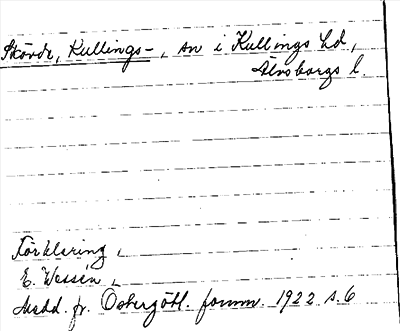 Skövde, Kullings-, sn i Kullings hd,
Älvsborgs l.
Förklaring
E. Wessén,
Medd. fr. Östergötl. fornm. 1922 s. 6